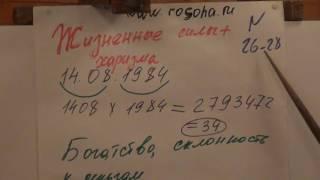 www.rosoha.ru
Жизненные силы+
харизма
N
26-28
14.08.1984
1408 х 1984 = 2793472
=34
Богатства, склонность
к